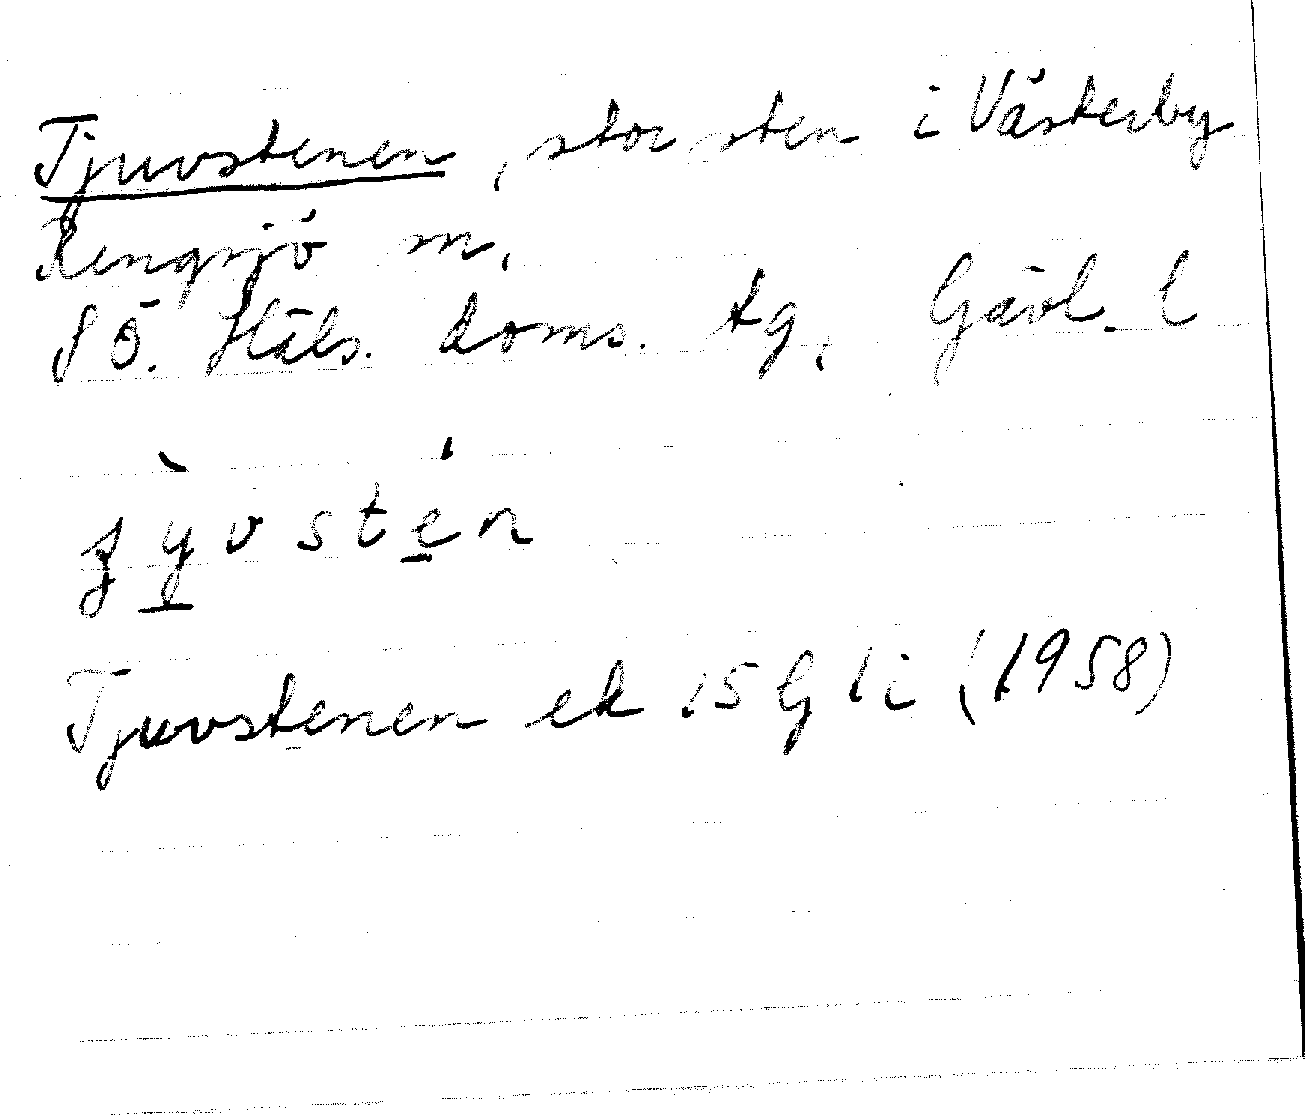 Tjuvstenen, stor sten i Västerby
Rengsjö m,
SÖ. Häls. doms. tg, Gävl. l
ỳ̠vsté̠n
Tjuvstenen ek 15G 1i (1958)